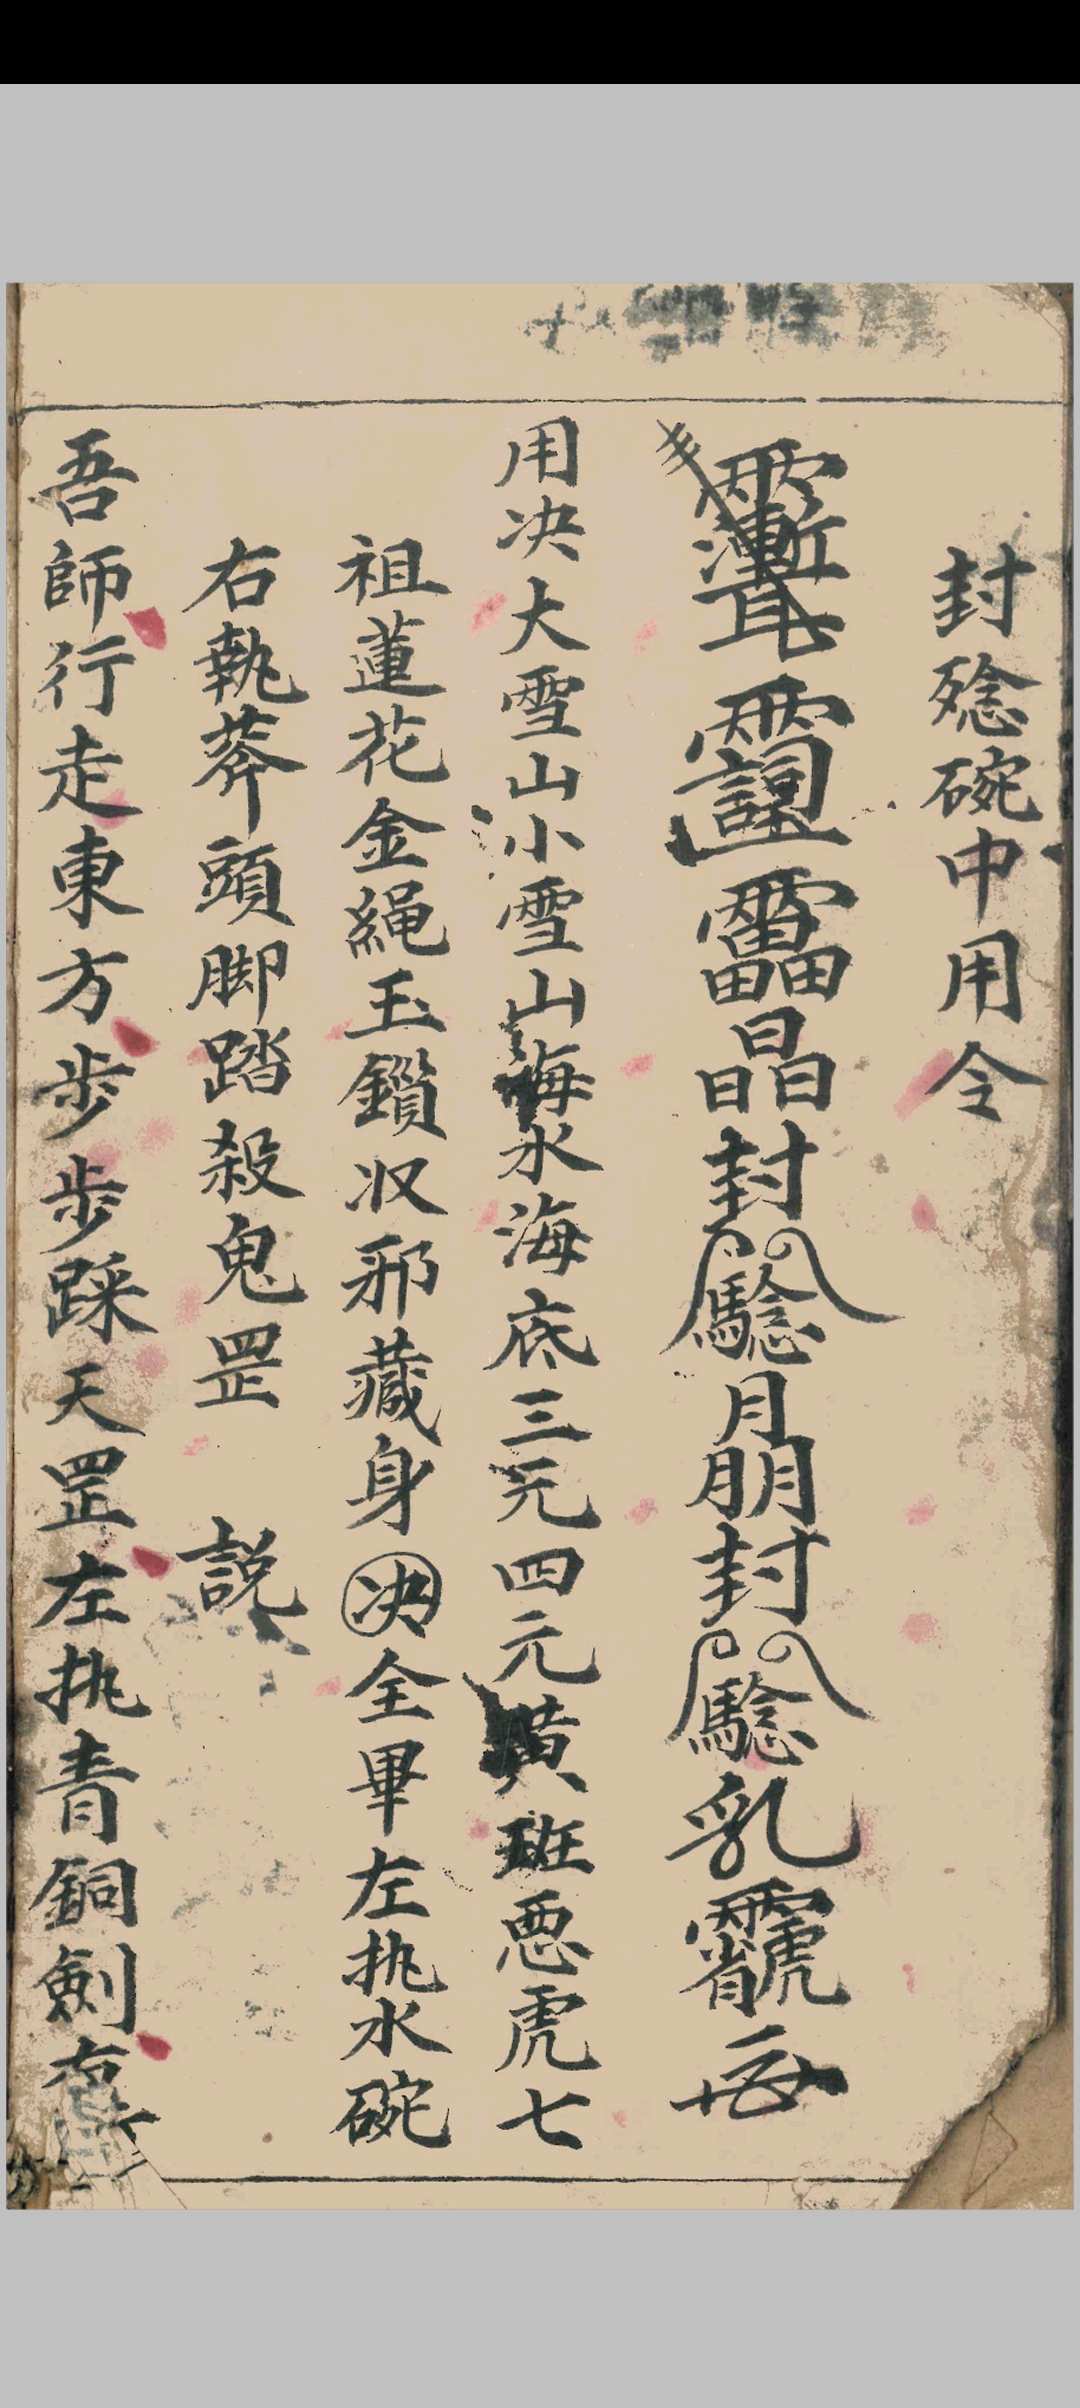 封殮碗中用令
封 月朋封 乳
用决大雪山小雪山海水海底三元四元黄斑恶虎七
祖蓮花金繩玉鎖収邪藏身决全畢左执水碗
右執莾頭脚踏殺鬼罡 説
吾師行走東方步步踩天罡左执青銅劍